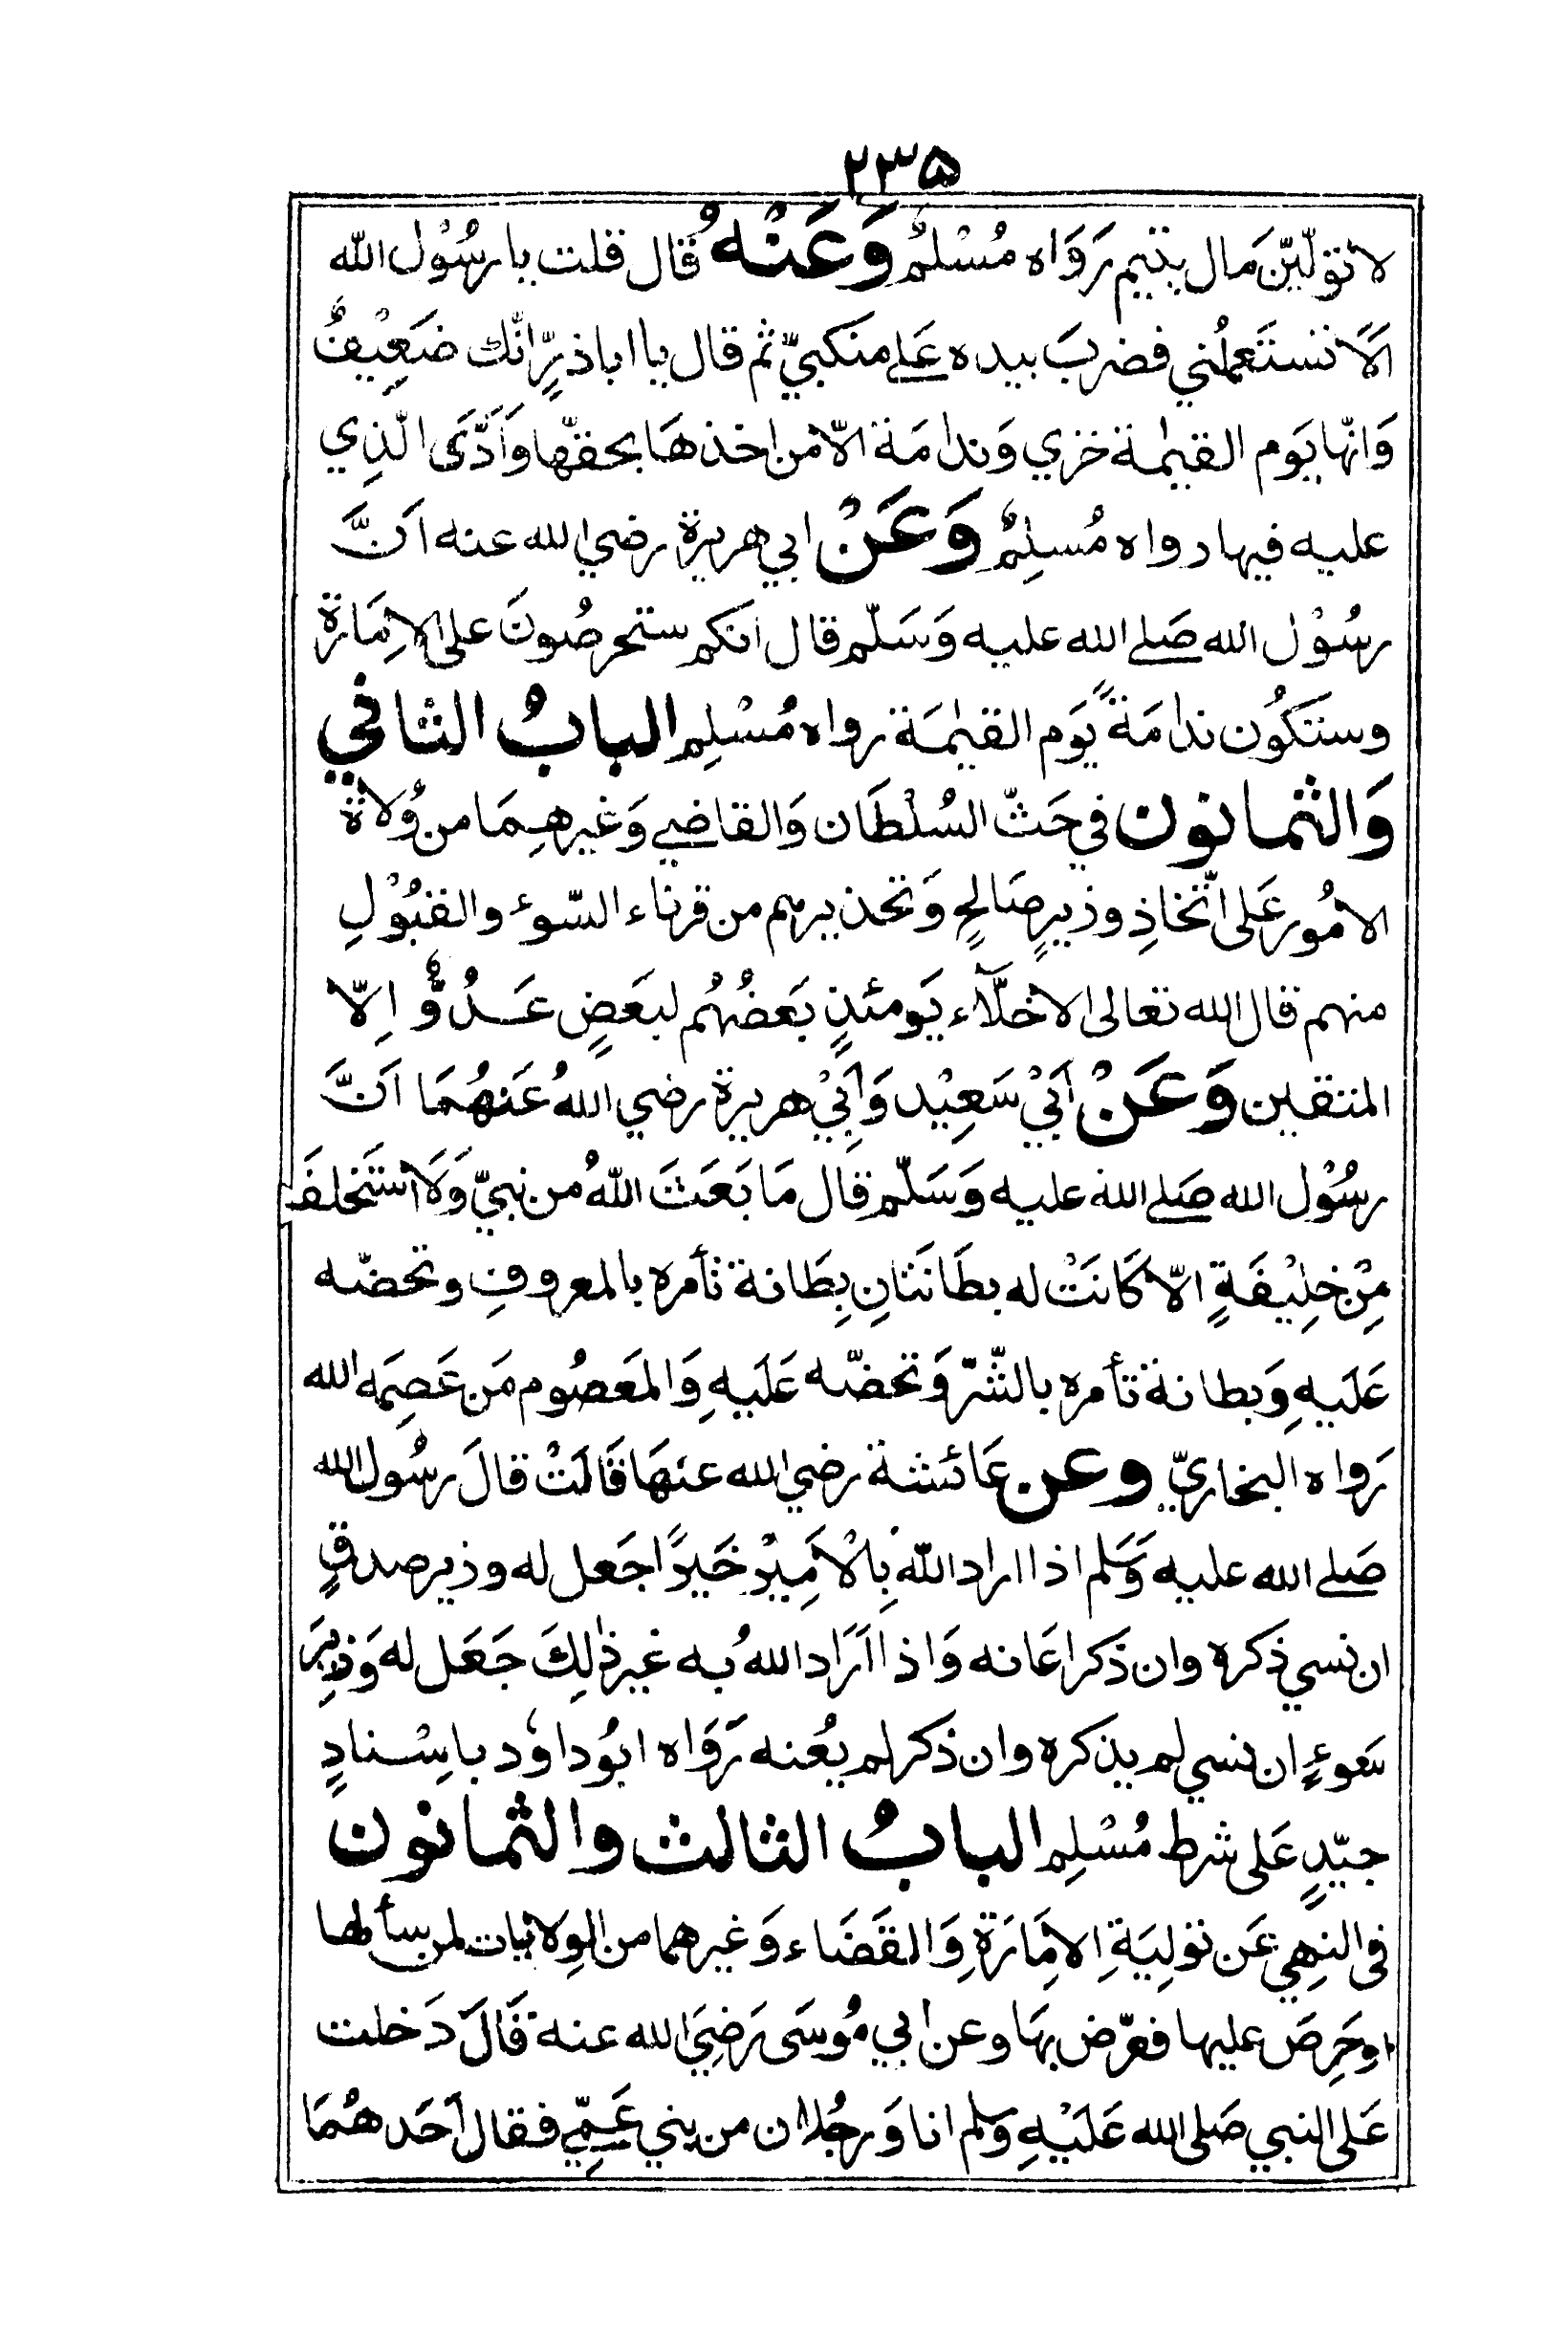 ۲۳۵
لا تولّينّ مَال يتيم رَوَاه مُسْلمٌ وَعَنْهُ قال قلت يا رسُوْل الله
الَا تستَعملُني فضربَ بيده عَلے منكبيّ ثم قال يا ابا ذرٍّ انّك ضَعِيْفٌ
وَانّها يَوم القيٰمة خزي وَندامَة الّا من اخذهَا بحقّها وَاَدَّى الّذِي
عليه فيها رواه مُسلِمٌ وَعَنْ ابي هريرة رضي الله عنه اَنَّ
رسُوْل الله صَلے الله عليه وَسَلّم قال انكم ستحرصُونَ على الاِمَارة
وستكُون ندامَةً يَوم القيٰمَة رواه مُسْلِم البابُ الثاني
وَالثمانون في حَثّ السُلْطَان وَالقاضي وَغيرهِمَا من وُلاة
الامُور عَلى اتّخاذِ وزيرٍ صَالحٍ وَتحذيرهم من قرناء السّوء والقبُوْلِ
منهم قال الله تعالى الاخلّآء يَومئذٍ بَعضُهُم لبَعَضٍ عَدُوٌّ اِلّا
المتقين وَعَنْ اَبيْ سَعِيْد وَاَبِيْ هريرة رضي اللهُ عَنهُمَا اَنَّ
رسُوْل الله صَلے الله عليه وَسَلّم قال مَا بَعَثَ اللّهُ من نبيّ وَلَا اسْتَخلفَ
مِنْ خلِيْفَةٍ الّا كَانَتْ له بطَانَتَانِ بِطَانة تأمره بالمعروفِ وتحضّه
عَلَيهِ وَبطانة تأمره بالشّرّ وَتحضّه عَلَيهِ وَالمَعصُوم مَن عَصِمَه الله
رَواه البخاريّ وعن عَائشة رضي الله عنهَا قَالَتْ قالَ رسُول الله
صَلے الله عليه وَسَلم اذا اراد اللّه بِالْاَمِيْر خَيرًا جَعل له وزير صدقٍ
ان نسي ذكره وان ذَكر اعَانه وَاذا اَرَاد اللهُ به غير ذٰلِكَ جَعَل له وَزِيرَ
سَوءٍ ان نسي لم يذكره وان ذكر لم يُعنه رَوَاه ابُو داوٗد باِسْنادٍ
جيّدٍ عَلى شرط مُسْلِم البابُ الثالث والثمانون
فى النهِي عَن توَلِيَةِ الاِمَارَةِ وَالقَضَاء وَغيرهما من الوِلايات لمن سألها
اوحَرِصَ عليها فعرّض بهَا وعن ابي مُوسَى رَضِيَ الله عنه قَالَ دَخلت
عَلى النبي صَلى الله عَلَيْهِ وَسَلم انا وَرجُلان من بني عَمِّي فقال اَحَدهُمَا